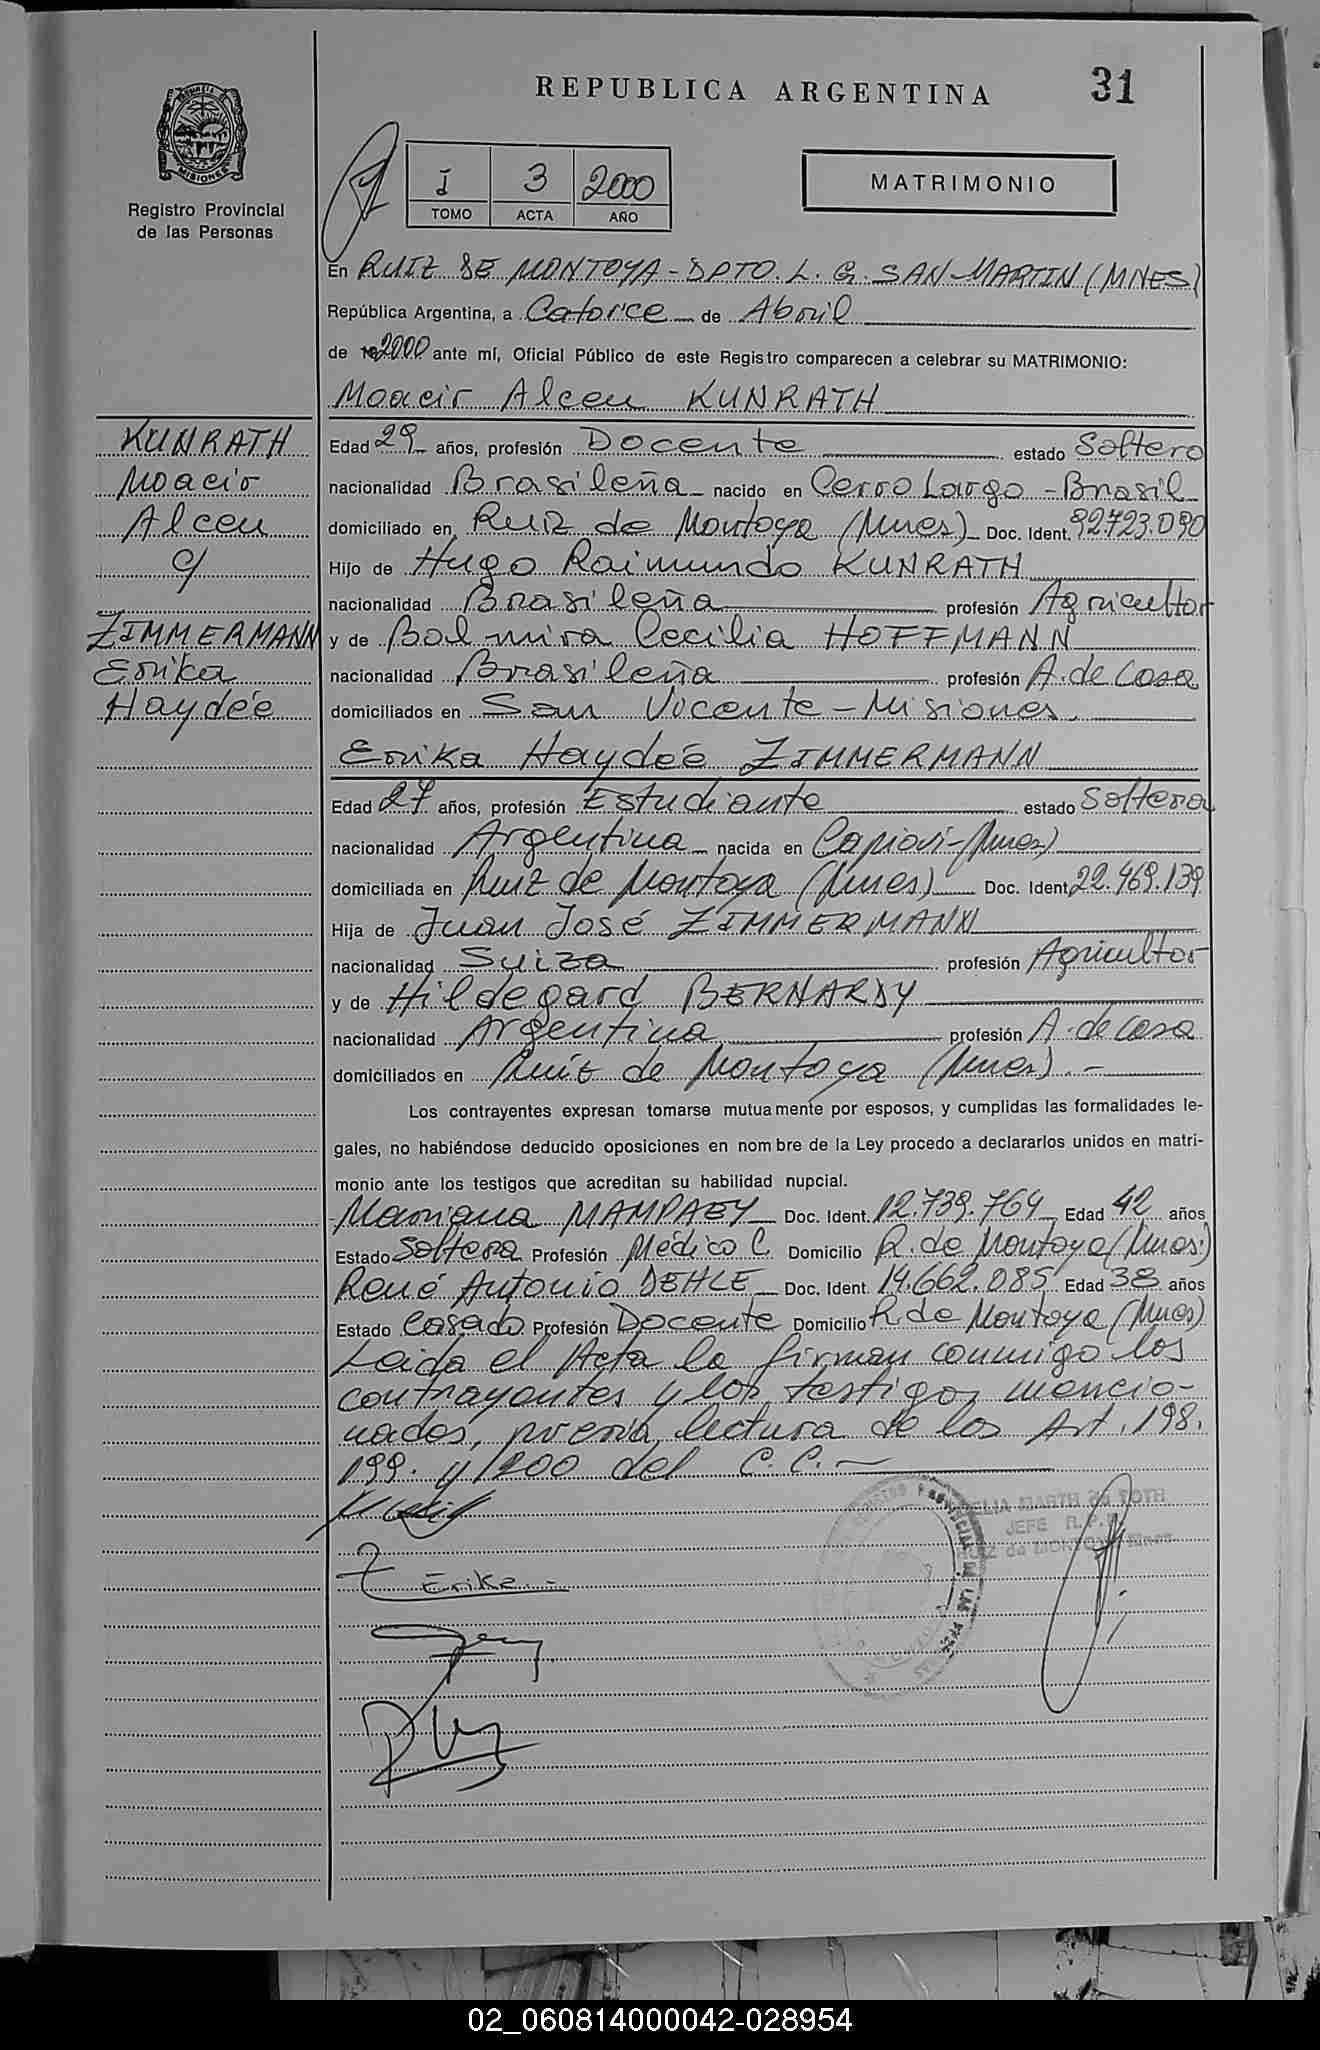 REPUBLICA ARGENTINA
31
MISIONES
Registro Provincial
de las Personas
I 3 2000
TOMO ACTA AÑO
MATRIMONIO
En RUIZ DE MONTOYA - DPTO. L. G. SAN MARTIN (MNES)
República Argentina, a Catorce de Abril
de 2000 ante mí, Oficial Público de este Registro comparecen a celebrar su MATRIMONIO:
Moacir Alceu KUNRATH
KUNRATH
Moacir
Alceu
c/
ZIMMERMANN
Erika
Haydée
Edad 29 años, profesión Docente estado Soltero
nacionalidad Brasileña nacido en Cerro Largo - Brasil
domiciliado en Ruiz de Montoya (Mnes) Doc. Ident. 92.723.090
Hijo de Hugo Raimundo KUNRATH
nacionalidad Brasileña profesión Agricultor
y de Balmira Cecilia HOFFMANN
nacionalidad Brasileña profesión A. de Casa
domiciliados en San Vicente - Misiones.
Erika Haydée ZIMMERMANN
Edad 27 años, profesión Estudiante estado Soltera
nacionalidad Argentina nacida en Capiovi-(Mnes)
domiciliada en Ruiz de Montoya (Mnes) Doc. Ident. 22.469.139
Hija de Juan José ZIMMERMANN
nacionalidad Suiza profesión Agricultor
y de Hildegard BERNARDY
nacionalidad Argentina profesión A. de casa
domiciliados en Ruiz de Montoya (Mnes). -
Los contrayentes expresan tomarse mutuamente por esposos, y cumplidas las formalidades le-
gales, no habiéndose deducido oposiciones en nombre de la Ley procedo a declararlos unidos en matri-
monio ante los testigos que acreditan su habilidad nupcial.
Mariana MAMPAEY Doc. Ident. 12.739.764 Edad 42 años
Estado Soltera Profesión Médico C. Domicilio R. de Montoya (Mnes.)
René Antonio DEHLE Doc. Ident. 14.662.085 Edad 38 años
Estado Casado Profesión Docente Domicilio R. de Montoya (Mnes)
Leida el Acta la firman conmigo los
contrayentes y los testigos mencio-
nados, previa lectura de los Art. 198.
199. y 200 del C. C. -
ELIA MARTH de ROTH
JEFE R.P.P.
RUIZ de MONTOYA Mnes
Erika
02_060814000042-028954